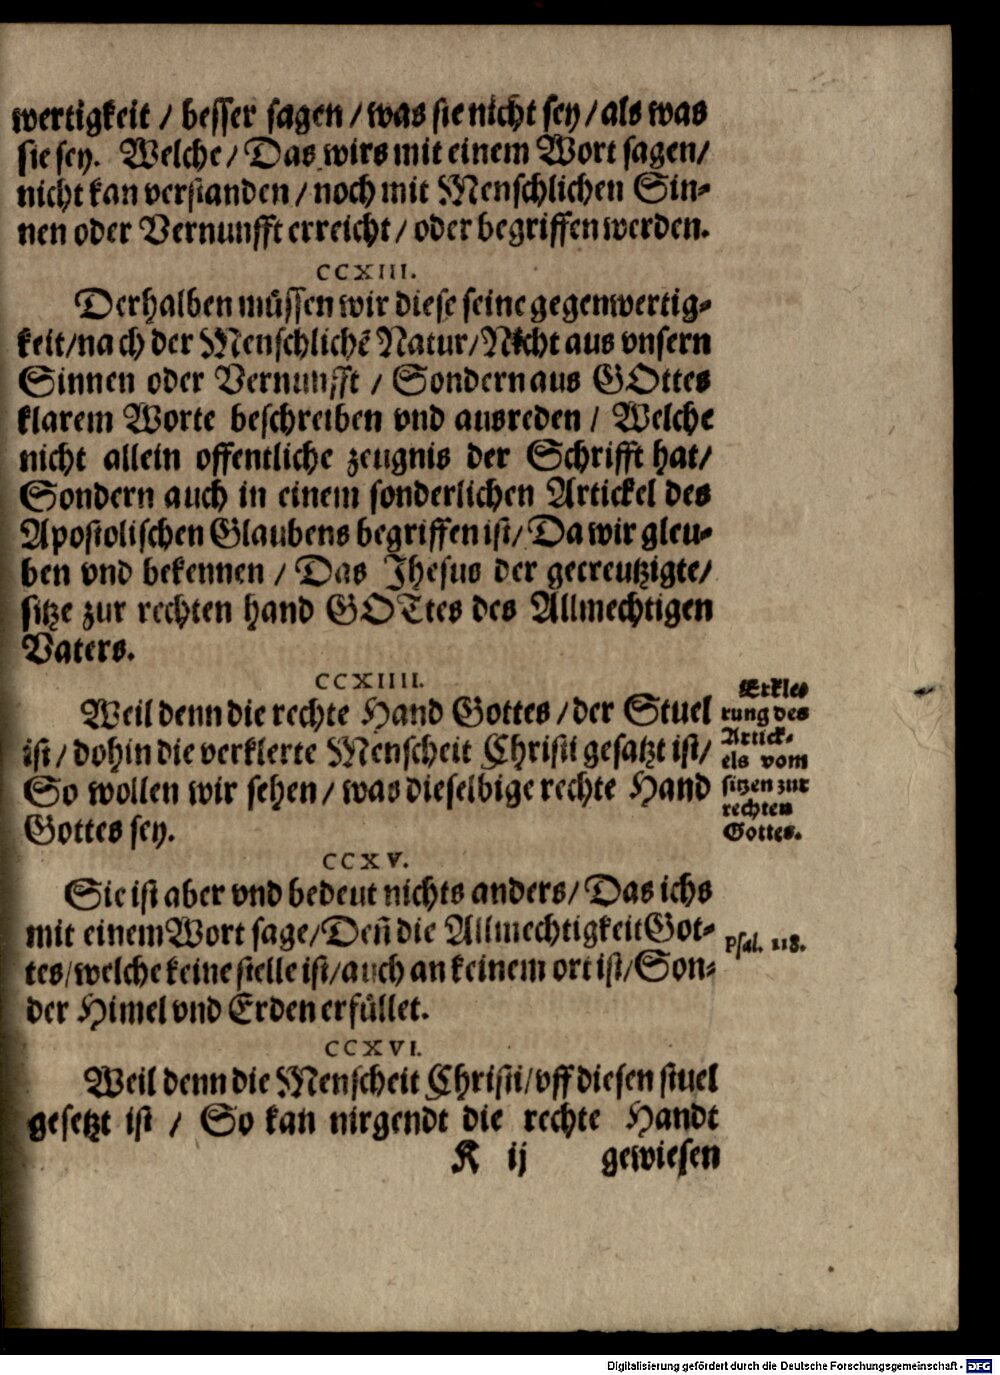 wertigkeit / besser sagen / was sie nicht sey / als was
sie sey. Welche / Das wirs mit einem Wort sagen /
nicht kan verstanden / noch mit Menschlichen Sin-
nen oder Vernunfft erreicht / oder begriffen werden.
CCXIII.
Derhalben müssen wir diese seine gegenwertig-
keit / nach der Menschlichẽ Natur / Nicht aus vnsern
Sinnen oder Vernunfft / Sondern aus GOttes
klarem Worte beschreiben vnd ausreden / Welche
nicht allein offentliche zeugnis der Schrifft hat /
Sondern auch in einem sonderlichen Artickel des
Apostolischen Glaubens begriffen ist / Da wir gleu-
ben vnd bekennen / Das Jhesus der gecreutzigte /
sitze zur rechten hand GOTtes des Allmechtigen
Vaters.
CCXIIII.
Weil denn die rechte Hand Gottes / der Stuel
ist / dohin die verklerte Menscheit Christi gesatzt ist /
So wollen wir sehen / was dieselbige rechte Hand
Gottes sey.
Erkle-
rung des
Artick-
els vom
sitzen zur
rechten
Gottes.
CCXV.
Sie ist aber vnd bedeut nichts anders / Das ichs
mit einem Wort sage / Deñ die Allmechtigkeit Got-
tes / welche keine stelle ist / auch an keinem ort ist / Son-
der Himel vnd Erden erfüllet.
Psal. 118.
CCXVI.
Weil denn die Menscheit Christi / vff diesen stuel
gesetzt ist / So kan nirgendt die rechte Handt
K ij gewiesen
Digitalisierung gefördert durch die Deutsche Forschungsgemeinschaft - DFG